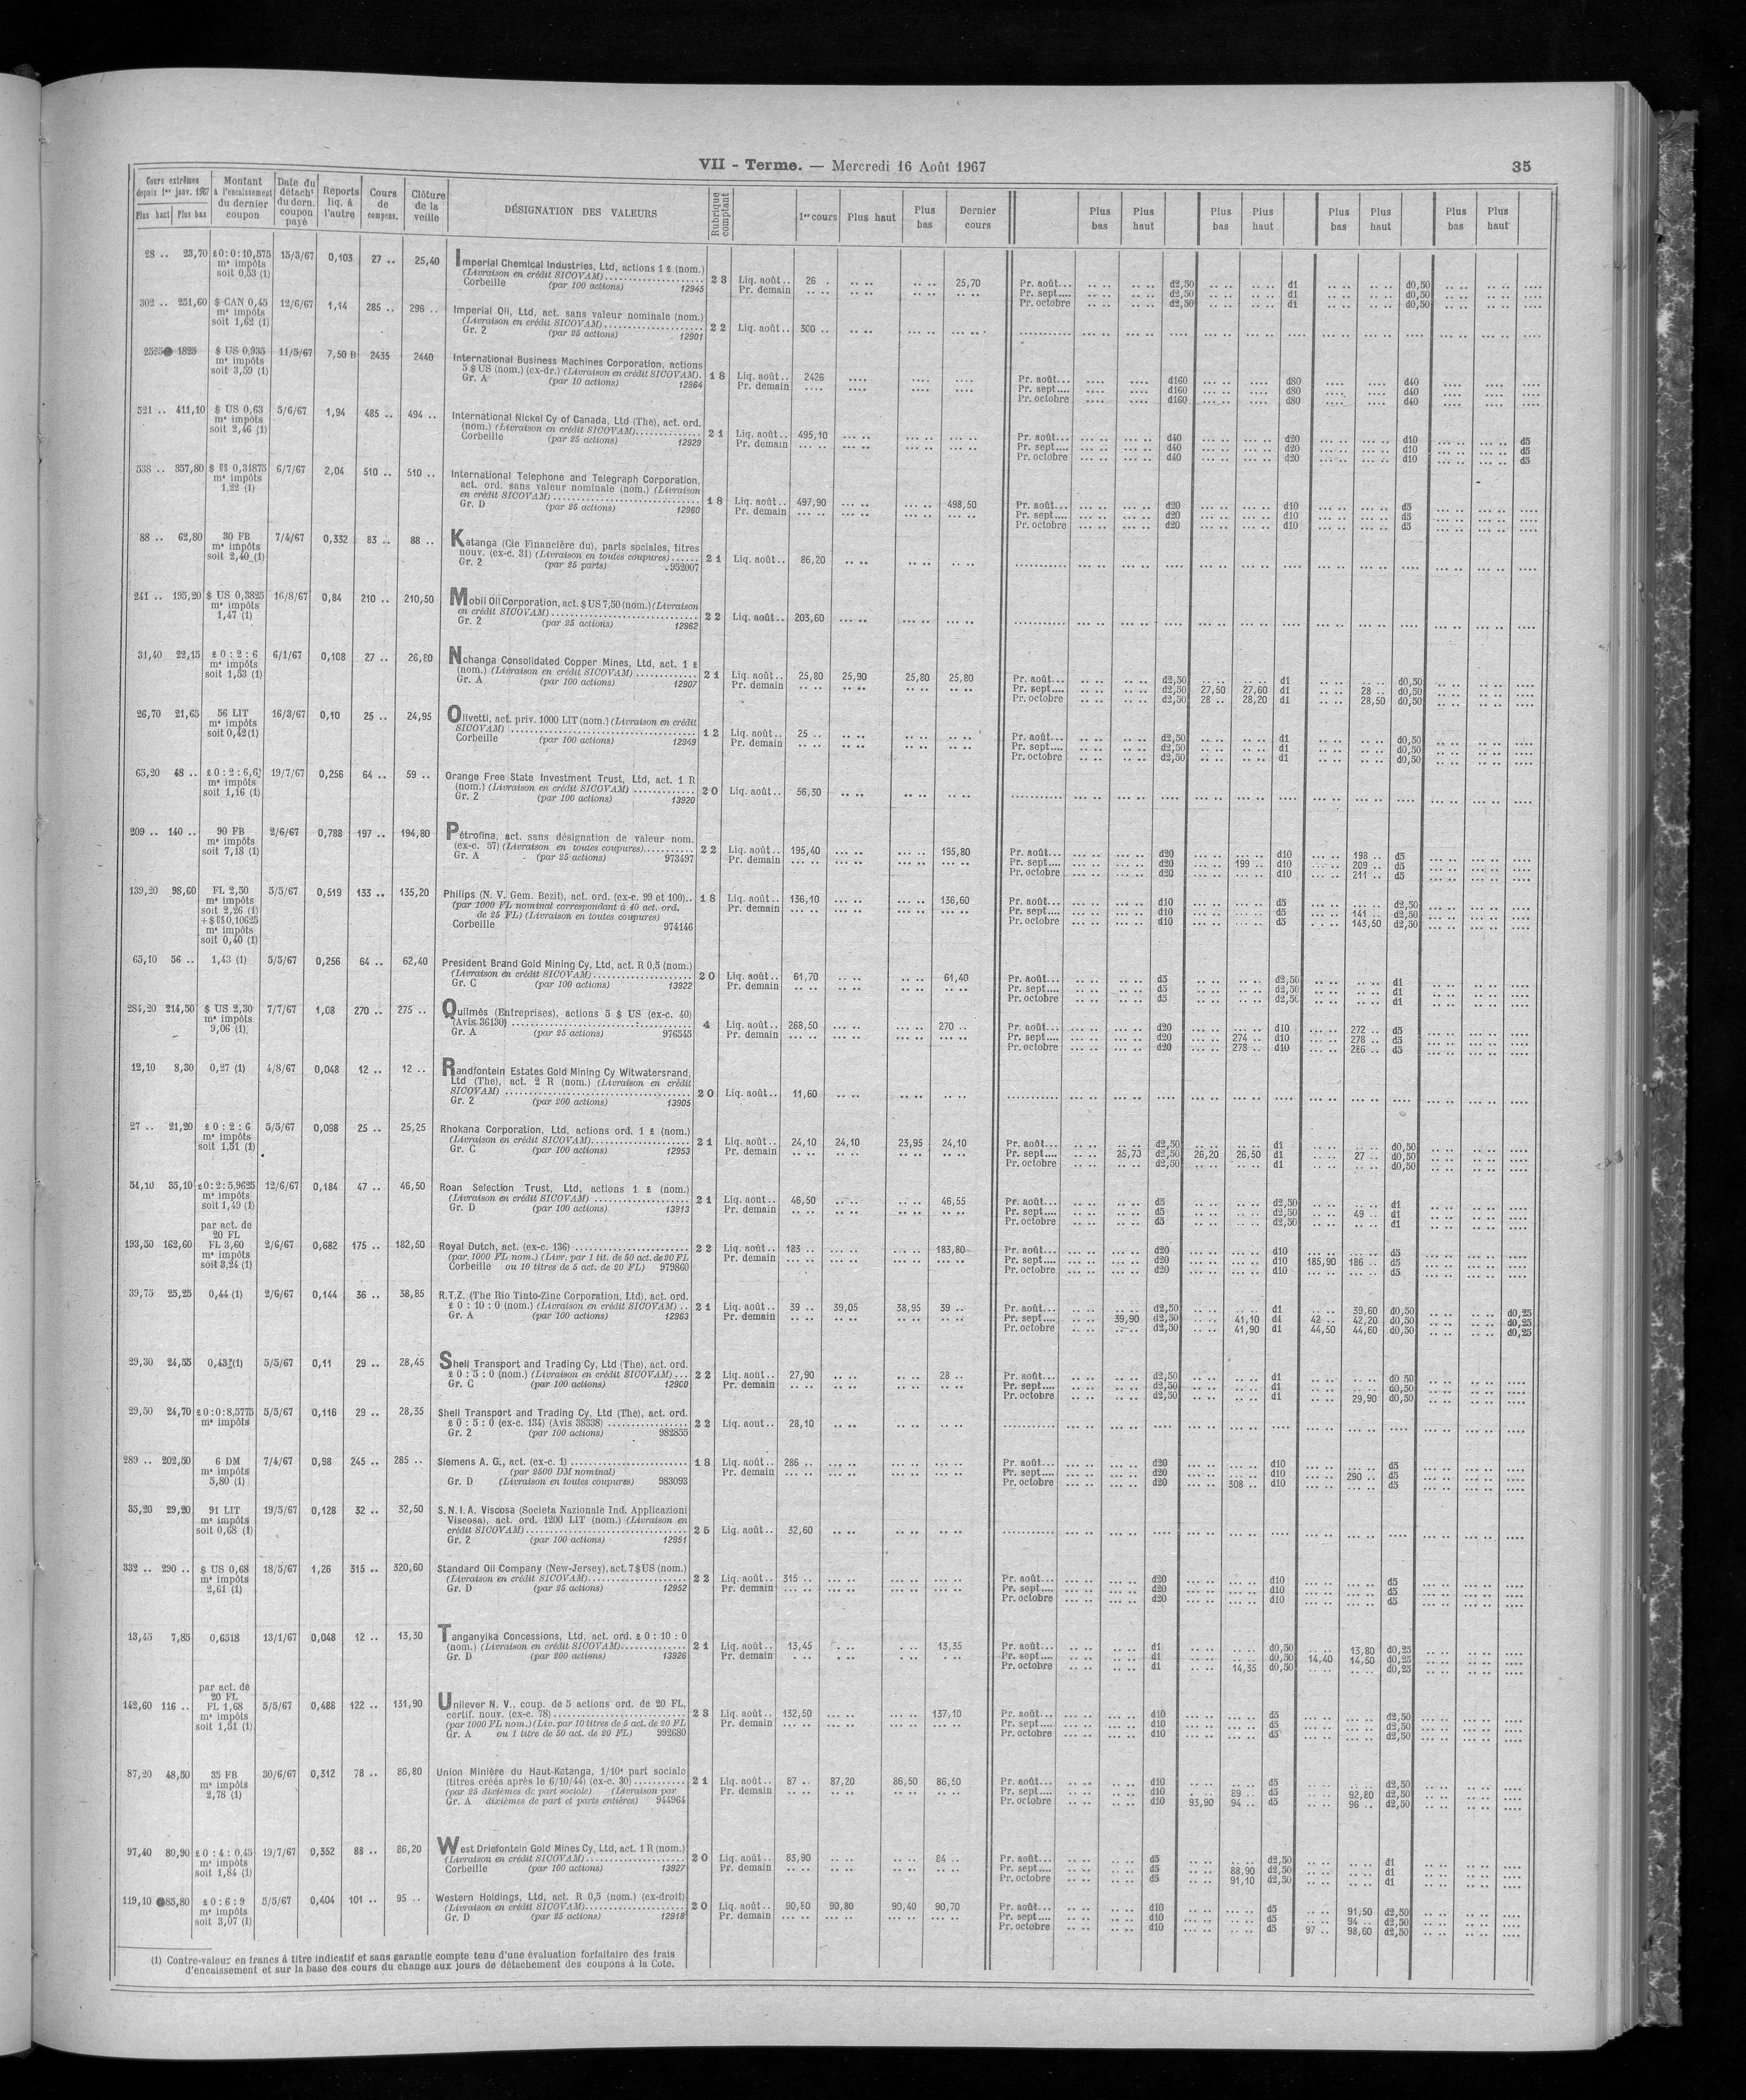 VII - Terme. — Mercredi 16 Août 1967
35
Cours extrêmes depuis 1er janv. 1967
Plus haut Plus bas
Montant à l'encaissement du dernier coupon
Date du détacht du dern. coupon payé
Reports liq. à l'autre
Cours de compens.
Clôture de la veille
DÉSIGNATION DES VALEURS
Rubrique comptant
1er cours Plus haut Plus bas Dernier cours
Plus bas Plus haut Plus bas Plus haut Plus bas Plus haut Plus bas Plus haut
28 .. 23,70 £0:0:10,575 15/3/67 0,103 27 .. 25,40 Imperial Chemical Industries, Ltd, actions 1 £ (nom.)
m* impôts (Livraison en crédit SICOVAM) 28 Liq. août.. 26 . .. .. .. .. 25,70 Pr. août... d2,50 d1 d0,50
soit 0,53 (1) Corbeille (par 100 actions) 12945 Pr. demain Pr. sept.... d2,50 d1 d0,50
Pr. octobre d2,50 d1 d0,50
302 .. 251,60 $ CAN 0,45 12/6/67 1,14 285 .. 296 .. Imperial Oil, Ltd, act. sans valeur nominale (nom.)
m* impôts (Livraison en crédit SICOVAM) 22 Liq. août.. 300 ..
soit 1,62 (1) Gr. 2 (par 25 actions) 12901
2525 1825 $ US 0,935 11/5/67 7,50 B 2435 2440 International Business Machines Corporation, actions
m* impôts 5 $ US (nom.) (ex-dr.) (Livraison en crédit SICOVAM). 18 Liq. août.. 2426 Pr. août... d160 d80 d40
soit 3,59 (1) Gr. A (par 10 actions) 12964 Pr. demain Pr. sept.... d160 d80 d40
Pr. octobre d160 d80 d40
521 .. 411,10 $ US 0,63 5/6/67 1,94 485 .. 494 .. International Nickel Cy of Canada, Ltd (The), act. ord.
m* impôts (nom.) (Livraison en crédit SICOVAM) 21 Liq. août.. 495,10 Pr. août... d40 d20 d10 d5
soit 2,46 (1) Corbeille (par 25 actions) 12929 Pr. demain Pr. sept.... d40 d20 d10 d5
Pr. octobre d40 d20 d10 d5
538 .. 357,80 $ US 0,31875 6/7/67 2,04 510 .. 510 .. International Telephone and Telegraph Corporation,
m* impôts act. ord. sans valeur nominale (nom.) (Livraison
1,22 (1) en crédit SICOVAM) 18 Liq. août.. 497,90 498,50 Pr. août... d20 d10 d5
Gr. D (par 25 actions) 12960 Pr. demain Pr. sept.... d20 d10 d5
Pr. octobre d20 d10 d5
88 .. 62,80 30 FB 7/4/67 0,332 83 .. 88 .. Katanga (Cie Financière du), parts sociales, titres
m* impôts nouv. (ex-c. 31) (Livraison en toutes coupures) 21 Liq. août.. 86,20
soit 2,40 (1) Gr. 2 (par 25 parts) 952007
241 .. 195,20 $ US 0,3825 16/8/67 0,84 210 .. 210,50 Mobil Oil Corporation, act. $ US 7,50 (nom.) (Livraison
m* impôts en crédit SICOVAM) 22 Liq. août.. 203,60
1,47 (1) Gr. 2 (par 25 actions) 12962
31,40 22,15 £ 0 : 2 : 6 6/1/67 0,108 27 .. 26,80 Nchanga Consolidated Copper Mines, Ltd, act. 1 £
m* impôts (nom.) (Livraison en crédit SICOVAM) 21 Liq. août.. 25,80 25,90 25,80 25,80 Pr. août... d2,50 d1 d0,50
soit 1,53 (1) Gr. A (par 100 actions) 12907 Pr. demain Pr. sept.... d2,50 27,50 27,60 d1 28 .. d0,50
Pr. octobre d2,50 28 .. 28,20 d1 28,50 d0,50
26,70 21,65 56 LIT 16/3/67 0,10 25 .. 24,95 Olivetti, act. priv. 1000 LIT (nom.) (Livraison en crédit
m* impôts SICOVAM) 12 Liq. août.. 25 .. Pr. août... d2,50 d1 d0,50
soit 0,42 (1) Corbeille (par 100 actions) 12949 Pr. demain Pr. sept.... d2,50 d1 d0,50
Pr. octobre d2,50 d1 d0,50
65,20 48 .. £ 0 : 2 : 6,6 19/7/67 0,256 64 .. 59 .. Orange Free State Investment Trust, Ltd, act. 1 R
m* impôts (nom.) (Livraison en crédit SICOVAM) 20 Liq. août.. 56,30
soit 1,16 (1) Gr. 2 (par 100 actions) 13920
209 .. 140 .. 90 FB 2/6/67 0,788 197 .. 194,80 Pétrofina, act. sans désignation de valeur nom.
m* impôts (ex-c. 57) (Livraison en toutes coupures) 22 Liq. août.. 195,40 195,80 Pr. août... d20 d10 198 .. d5
soit 7,18 (1) Gr. A (par 25 actions) 973497 Pr. demain Pr. sept.... d20 199 .. d10 209 .. d5
Pr. octobre d20 d10 211 .. d5
139,20 98,60 FL 2,50 5/5/67 0,519 133 .. 135,20 Philips (N. V. Gem. Bezit), act. ord. (ex-c. 99 et 100).. 18 Liq. août.. 136,10 136,60 Pr. août... d10 d5 d2,50
m* impôts (par 1000 FL nominal correspondant à 40 act. ord. Pr. demain Pr. sept.... d10 d5 141 .. d2,50
soit 2,26 (1) de 25 FL) (Livraison en toutes coupures) Pr. octobre d10 d5 143,50 d2,50
+ $ US 0,10625 Corbeille 974146
m* impôts
soit 0,40 (1)
65,10 56 .. 1,43 (1) 5/5/67 0,256 64 .. 62,40 President Brand Gold Mining Cy, Ltd, act. R 0,5 (nom.)
(Livraison en crédit SICOVAM) 20 Liq. août.. 61,70 61,40 Pr. août... d5 d2,50 d1
Gr. C (par 100 actions) 13922 Pr. demain Pr. sept.... d5 d2,50 d1
Pr. octobre d5 d2,50 d1
284,20 214,50 $ US 2,30 7/7/67 1,08 270 .. 275 .. Quilmès (Entreprises), actions 5 $ US (ex-c. 40)
m* impôts (Avis 36130) 4 Liq. août.. 268,50 270 .. Pr. août... d20 d10 272 .. d5
9,06 (1) Gr. A (par 25 actions) 976545 Pr. demain Pr. sept.... d20 274 .. d10 278 .. d5
Pr. octobre d20 278 .. d10 286 .. d5
12,10 8,30 0,27 (1) 4/8/67 0,048 12 .. 12 .. Randfontein Estates Gold Mining Cy Witwatersrand,
Ltd (The), act. 2 R (nom.) (Livraison en crédit
SICOVAM) 20 Liq. août.. 11,60
Gr. 2 (par 200 actions) 13905
27 .. 21,20 £ 0 : 2 : 6 5/5/67 0,098 25 .. 25,25 Rhokana Corporation, Ltd, actions ord. 1 £ (nom.)
m* impôts (Livraison en crédit SICOVAM) 21 Liq. août.. 24,10 24,10 23,95 24,10 Pr. août... d2,50 d1 d0,50
soit 1,51 (1) Gr. C (par 100 actions) 12953 Pr. demain Pr. sept.... 25,73 d2,50 26,20 26,50 d1 27 .. d0,50
Pr. octobre d2,50 d1 d0,50
54,10 35,10 £0:2:5,9625 12/6/67 0,184 47 .. 46,50 Roan Selection Trust, Ltd, actions 1 £ (nom.)
m* impôts (Livraison en crédit SICOVAM) 21 Liq. août.. 46,50 46,55 Pr. août... d5 d2,50 d1
soit 1,49 (1) Gr. D (par 100 actions) 13913 Pr. demain Pr. sept.... d5 d2,50 49 .. d1
Pr. octobre d5 d2,50 d1
par act. de
20 FL
193,50 162,60 FL 3,60 2/6/67 0,682 175 .. 182,50 Royal Dutch, act. (ex-c. 136) 22 Liq. août.. 183 .. 183,80 Pr. août... d20 d10 d5
m* impôts (par 1000 FL nom.) (Livr. par 1 tit. de 50 act. de 20 FL Pr. demain Pr. sept.... d20 d10 185,90 186 .. d5
soit 3,24 (1) Corbeille ou 10 titres de 5 act. de 20 FL) 979860 Pr. octobre d20 d10 d5
39,75 25,25 0,44 (1) 2/6/67 0,144 36 .. 38,85 R.T.Z. (The Rio Tinto-Zinc Corporation, Ltd), act. ord.
£ 0 : 10 : 0 (nom.) (Livraison en crédit SICOVAM) .. 21 Liq. août.. 39 .. 39,05 38,95 39 .. Pr. août... d2,50 d1 39,60 d0,50 d0,25
Gr. A (par 100 actions) 12963 Pr. demain Pr. sept.... 39,90 d2,50 41,10 d1 42 .. 42,20 d0,50 d0,25
Pr. octobre d2,50 41,90 d1 44,50 44,60 d0,50 d0,25
29,30 24,55 0,43 (1) 5/5/67 0,11 29 .. 28,45 Shell Transport and Trading Cy, Ltd (The), act. ord.
£ 0 : 5 : 0 (nom.) (Livraison en crédit SICOVAM) ... 22 Liq. août.. 27,90 28 .. Pr. août... d2,50 d1 d0 50
Gr. C (par 100 actions) 12900 Pr. demain Pr. sept.... d2,50 d1 d0,50
Pr. octobre d2,50 d1 29,90 d0,50
29,50 24,70 £0:0:8,5775 5/5/67 0,116 29 .. 28,35 Shell Transport and Trading Cy, Ltd (The), act. ord.
m* impôts £ 0 : 5 : 0 (ex-c. 134) (Avis 38338) 22 Liq. août.. 28,10
Gr. 2 (par 100 actions) 982855
289 .. 202,50 6 DM 7/4/67 0,98 245 .. 285 .. Siemens A. G., act. (ex-c. 1) 18 Liq. août.. 286 .. Pr. août... d20 d10 d5
m* impôts (par 2500 DM nominal) Pr. demain Pr. sept.... d20 d10 290 .. d5
5,80 (1) Gr. D (Livraison en toutes coupures) 983093 Pr. octobre d20 308 .. d10 d5
35,20 29,20 91 LIT 19/5/67 0,128 32 .. 32,50 S.N.I.A. Viscosa (Societa Nazionale Ind. Applicazioni
m* impôts Viscosa), act. ord. 1200 LIT (nom.) (Livraison en
soit 0,68 (1) crédit SICOVAM) 25 Liq. août.. 32,60
Gr. 2 (par 100 actions) 12951
332 .. 290 .. $ US 0,68 18/5/67 1,26 315 .. 320,60 Standard Oil Company (New-Jersey), act. 7 $ US (nom.)
m* impôts (Livraison en crédit SICOVAM) 22 Liq. août.. 315 .. Pr. août... d20 d10 d5
2,61 (1) Gr. D (par 25 actions) 12952 Pr. demain Pr. sept.... d20 d10 d5
Pr. octobre d20 d10 d5
13,45 7,85 0,6518 13/1/67 0,048 12 .. 13,30 Tanganyika Concessions, Ltd, act. ord. £ 0 : 10 : 0
(nom.) (Livraison en crédit SICOVAM) 21 Liq. août.. 13,45 13,35 Pr. août... d1 d0,50 13,80 d0,25
Gr. D (par 200 actions) 13926 Pr. demain Pr. sept.... d1 d0,50 14,40 14,50 d0,25
Pr. octobre d1 14,35 d0,50 d0,25
par act. de
20 FL
142,60 116 .. FL 1,68 5/5/67 0,488 122 .. 131,90 Unilever N. V., coup. de 5 actions ord. de 20 FL,
m* impôts certif. nouv. (ex-c. 78) 28 Liq. août.. 132,50 137,10 Pr. août... d10 d5 d2,50
soit 1,51 (1) (par 1000 FL nom.) (Liv. par 10 titres de 5 act. de 20 FL Pr. demain Pr. sept.... d10 d5 d2,50
Gr. A ou 1 titre de 50 act. de 20 FL) 992680 Pr. octobre d10 d5 d2,50
87,20 48,50 35 FB 30/6/67 0,312 78 .. 86,80 Union Minière du Haut-Katanga, 1/10e part sociale
m* impôts (titres créés après le 6/10/44) (ex-c. 30) 21 Liq. août.. 87 .. 87,20 86,50 86,50 Pr. août... d10 d5 d2,50
2,78 (1) (par 25 dixièmes de part sociale) (Livraison par Pr. demain Pr. sept.... d10 89 .. d5 92,80 d2,50
Gr. A dixièmes de part et parts entières) 944964 Pr. octobre d10 93,90 94 .. d5 96 .. d2,50
97,40 80,90 £ 0 : 4 : 0,45 19/7/67 0,352 88 .. 86,20 West Driefontein Gold Mines Cy, Ltd, act. 1 R (nom.)
m* impôts (Livraison en crédit SICOVAM) 20 Liq. août.. 83,90 84 .. Pr. août... d5 d2,50 d1
soit 1,84 (1) Corbeille (par 100 actions) 13927 Pr. demain Pr. sept.... d5 88,90 d2,50 d1
Pr. octobre d5 91,10 d2,50 d1
119,10 85,80 £ 0 : 6 : 9 5/5/67 0,404 101 .. 95 .. Western Holdings, Ltd, act. R 0,5 (nom.) (ex-droit)
m* impôts (Livraison en crédit SICOVAM) 20 Liq. août.. 90,60 90,80 90,40 90,70 Pr. août... d10 d5 91,50 d2,50
soit 3,07 (1) Gr. D (par 25 actions) 12918 Pr. demain Pr. sept.... d10 d5 94 .. d2,50
Pr. octobre d10 d5 97 .. 98,60 d2,50
(1) Contre-valeur en francs à titre indicatif et sans garantie compte tenu d'une évaluation forfaitaire des frais
d'encaissement et sur la base des cours du change aux jours de détachement des coupons à la Cote.